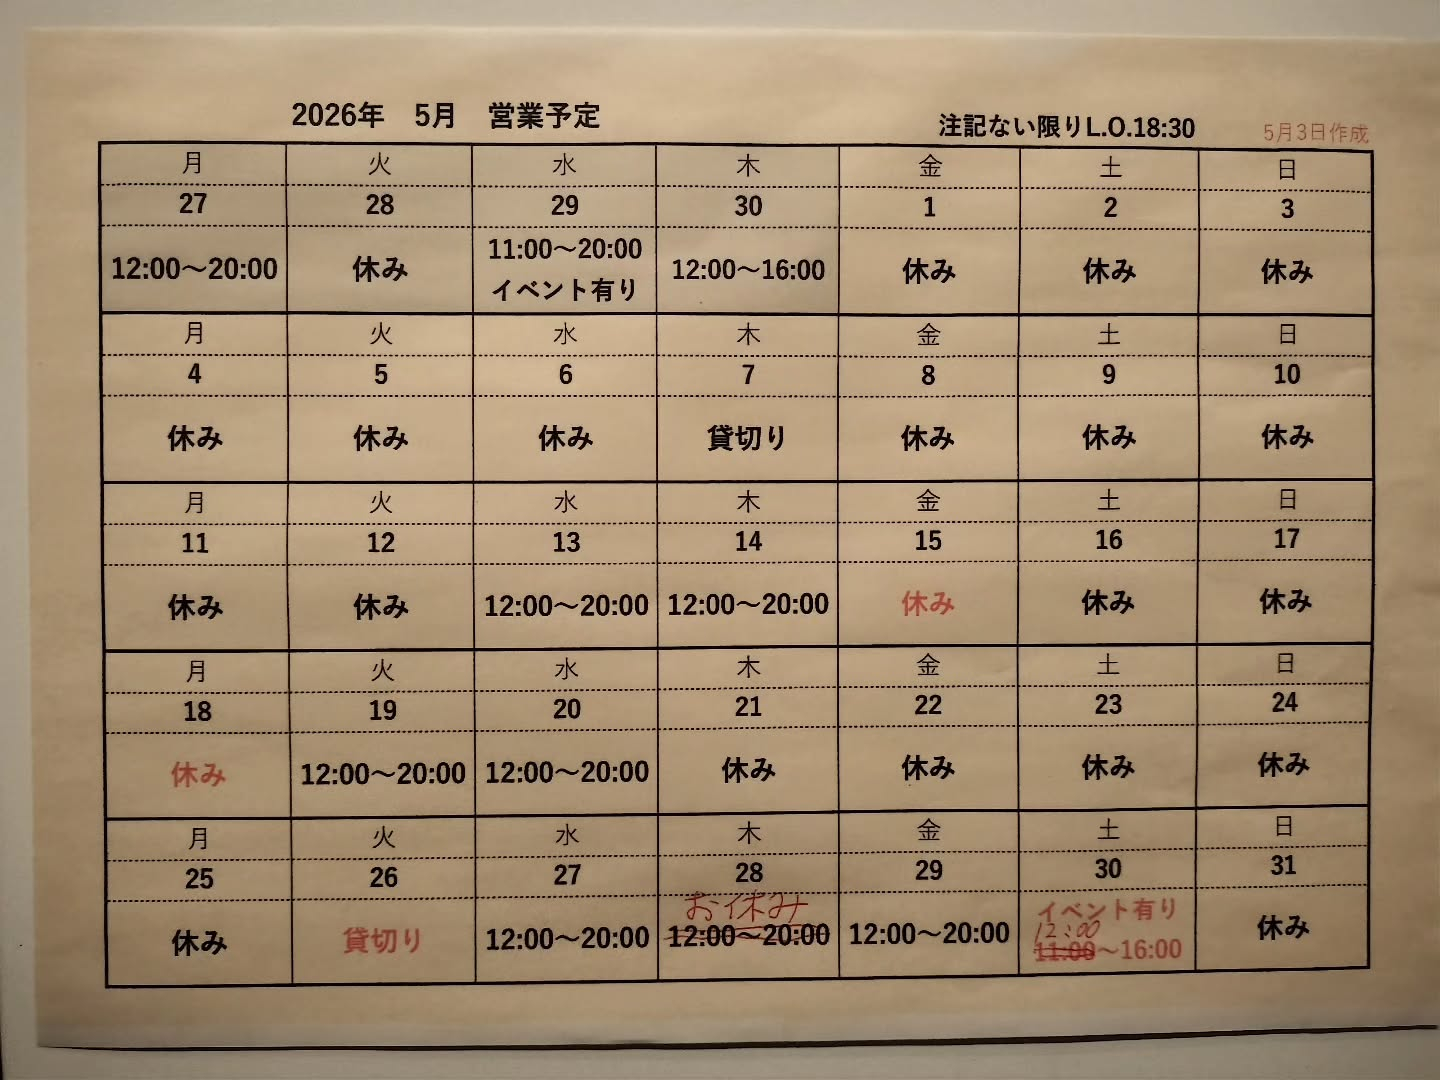 2026年　5月　営業予定
注記ない限りL.O.18:30
5月3日作成
月 火 水 木 金 土 日
27 28 29 30 1 2 3
12:00～20:00 休み 11:00～20:00 イベント有り 12:00～16:00 休み 休み 休み
月 火 水 木 金 土 日
4 5 6 7 8 9 10
休み 休み 休み 貸切り 休み 休み 休み
月 火 水 木 金 土 日
11 12 13 14 15 16 17
休み 休み 12:00～20:00 12:00～20:00 休み 休み 休み
月 火 水 木 金 土 日
18 19 20 21 22 23 24
休み 12:00～20:00 12:00～20:00 休み 休み 休み 休み
月 火 水 木 金 土 日
25 26 27 28 29 30 31
休み 貸切り 12:00～20:00 お休み 12:00～20:00 12:00～20:00 イベント有り 12:00 11:00～16:00 休み